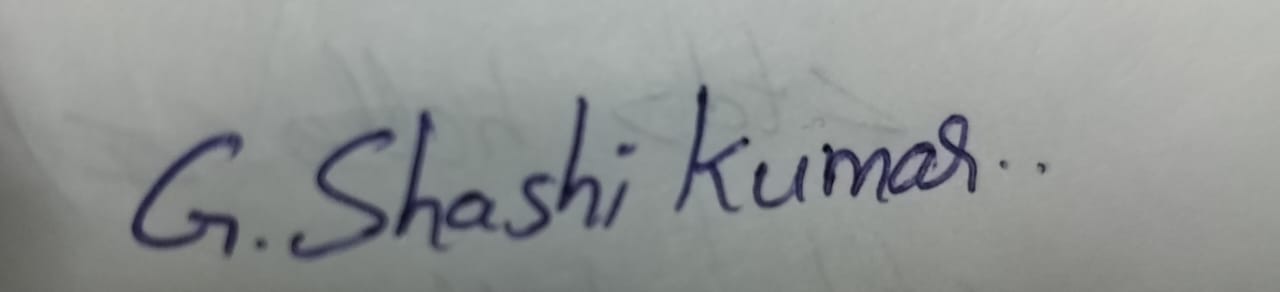 G. Shashi kumar..